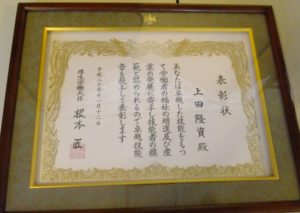 表彰状
上田隆資殿
あなたは卓越した技能をもつ
て労働者の福祉の増進及び産
業の発展に寄与し技能者の模
範と認められるので卓越技能
章を授与して表彰します
平成三十年十一月十二日
厚生労働大臣 根本匠